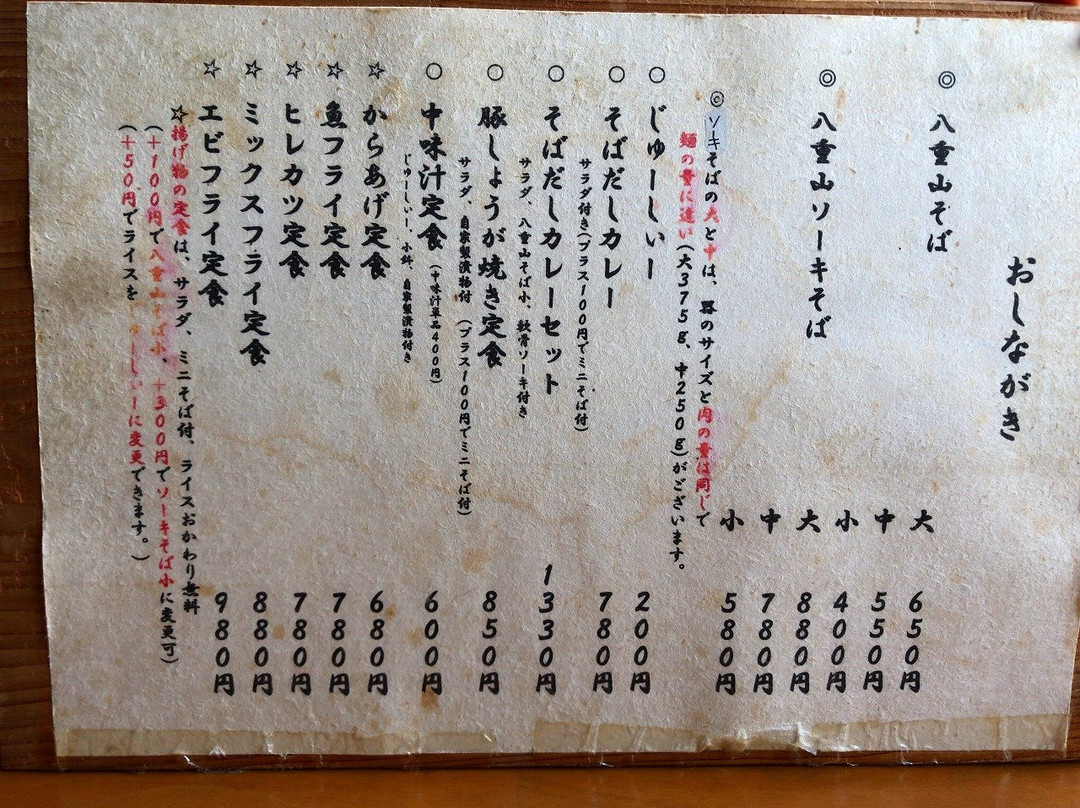 おしながき
◎ 八重山そば
大 650円
中 550円
小 400円
◎ 八重山ソーキそば
大 880円
中 780円
小 580円
◎ソキそばの大と中は、器のサイズと肉の量は同じで
麺の量に違い(大375g、中250g)がございます。
○ じゅーしぃー 200円
○ そばだしカレー 780円
サラダ付き(プラス100円でミニそば付)
○ そばだしカレーセット 1330円
サラダ、八重山そば小、軟骨ソーキ付き
○ 豚しょうが焼き定食 850円
サラダ、自家製漬物付 (プラス100円でミニそば付)
○ 中味汁定食 (中味汁単品400円) 600円
じゅーしぃー、小鉢、自家製漬物付き
☆ からあげ定食 680円
☆ 魚フライ定食 780円
☆ ヒレカツ定食 780円
☆ ミックスフライ定食 880円
☆ エビフライ定食 980円
☆揚げ物の定食は、サラダ、ミニそば付、ライスおかわり無料
(+100円で八重山そば小、+300円でソーキそば小に変更可)
(+50円でライスをじゅーしぃーに変更できます。)